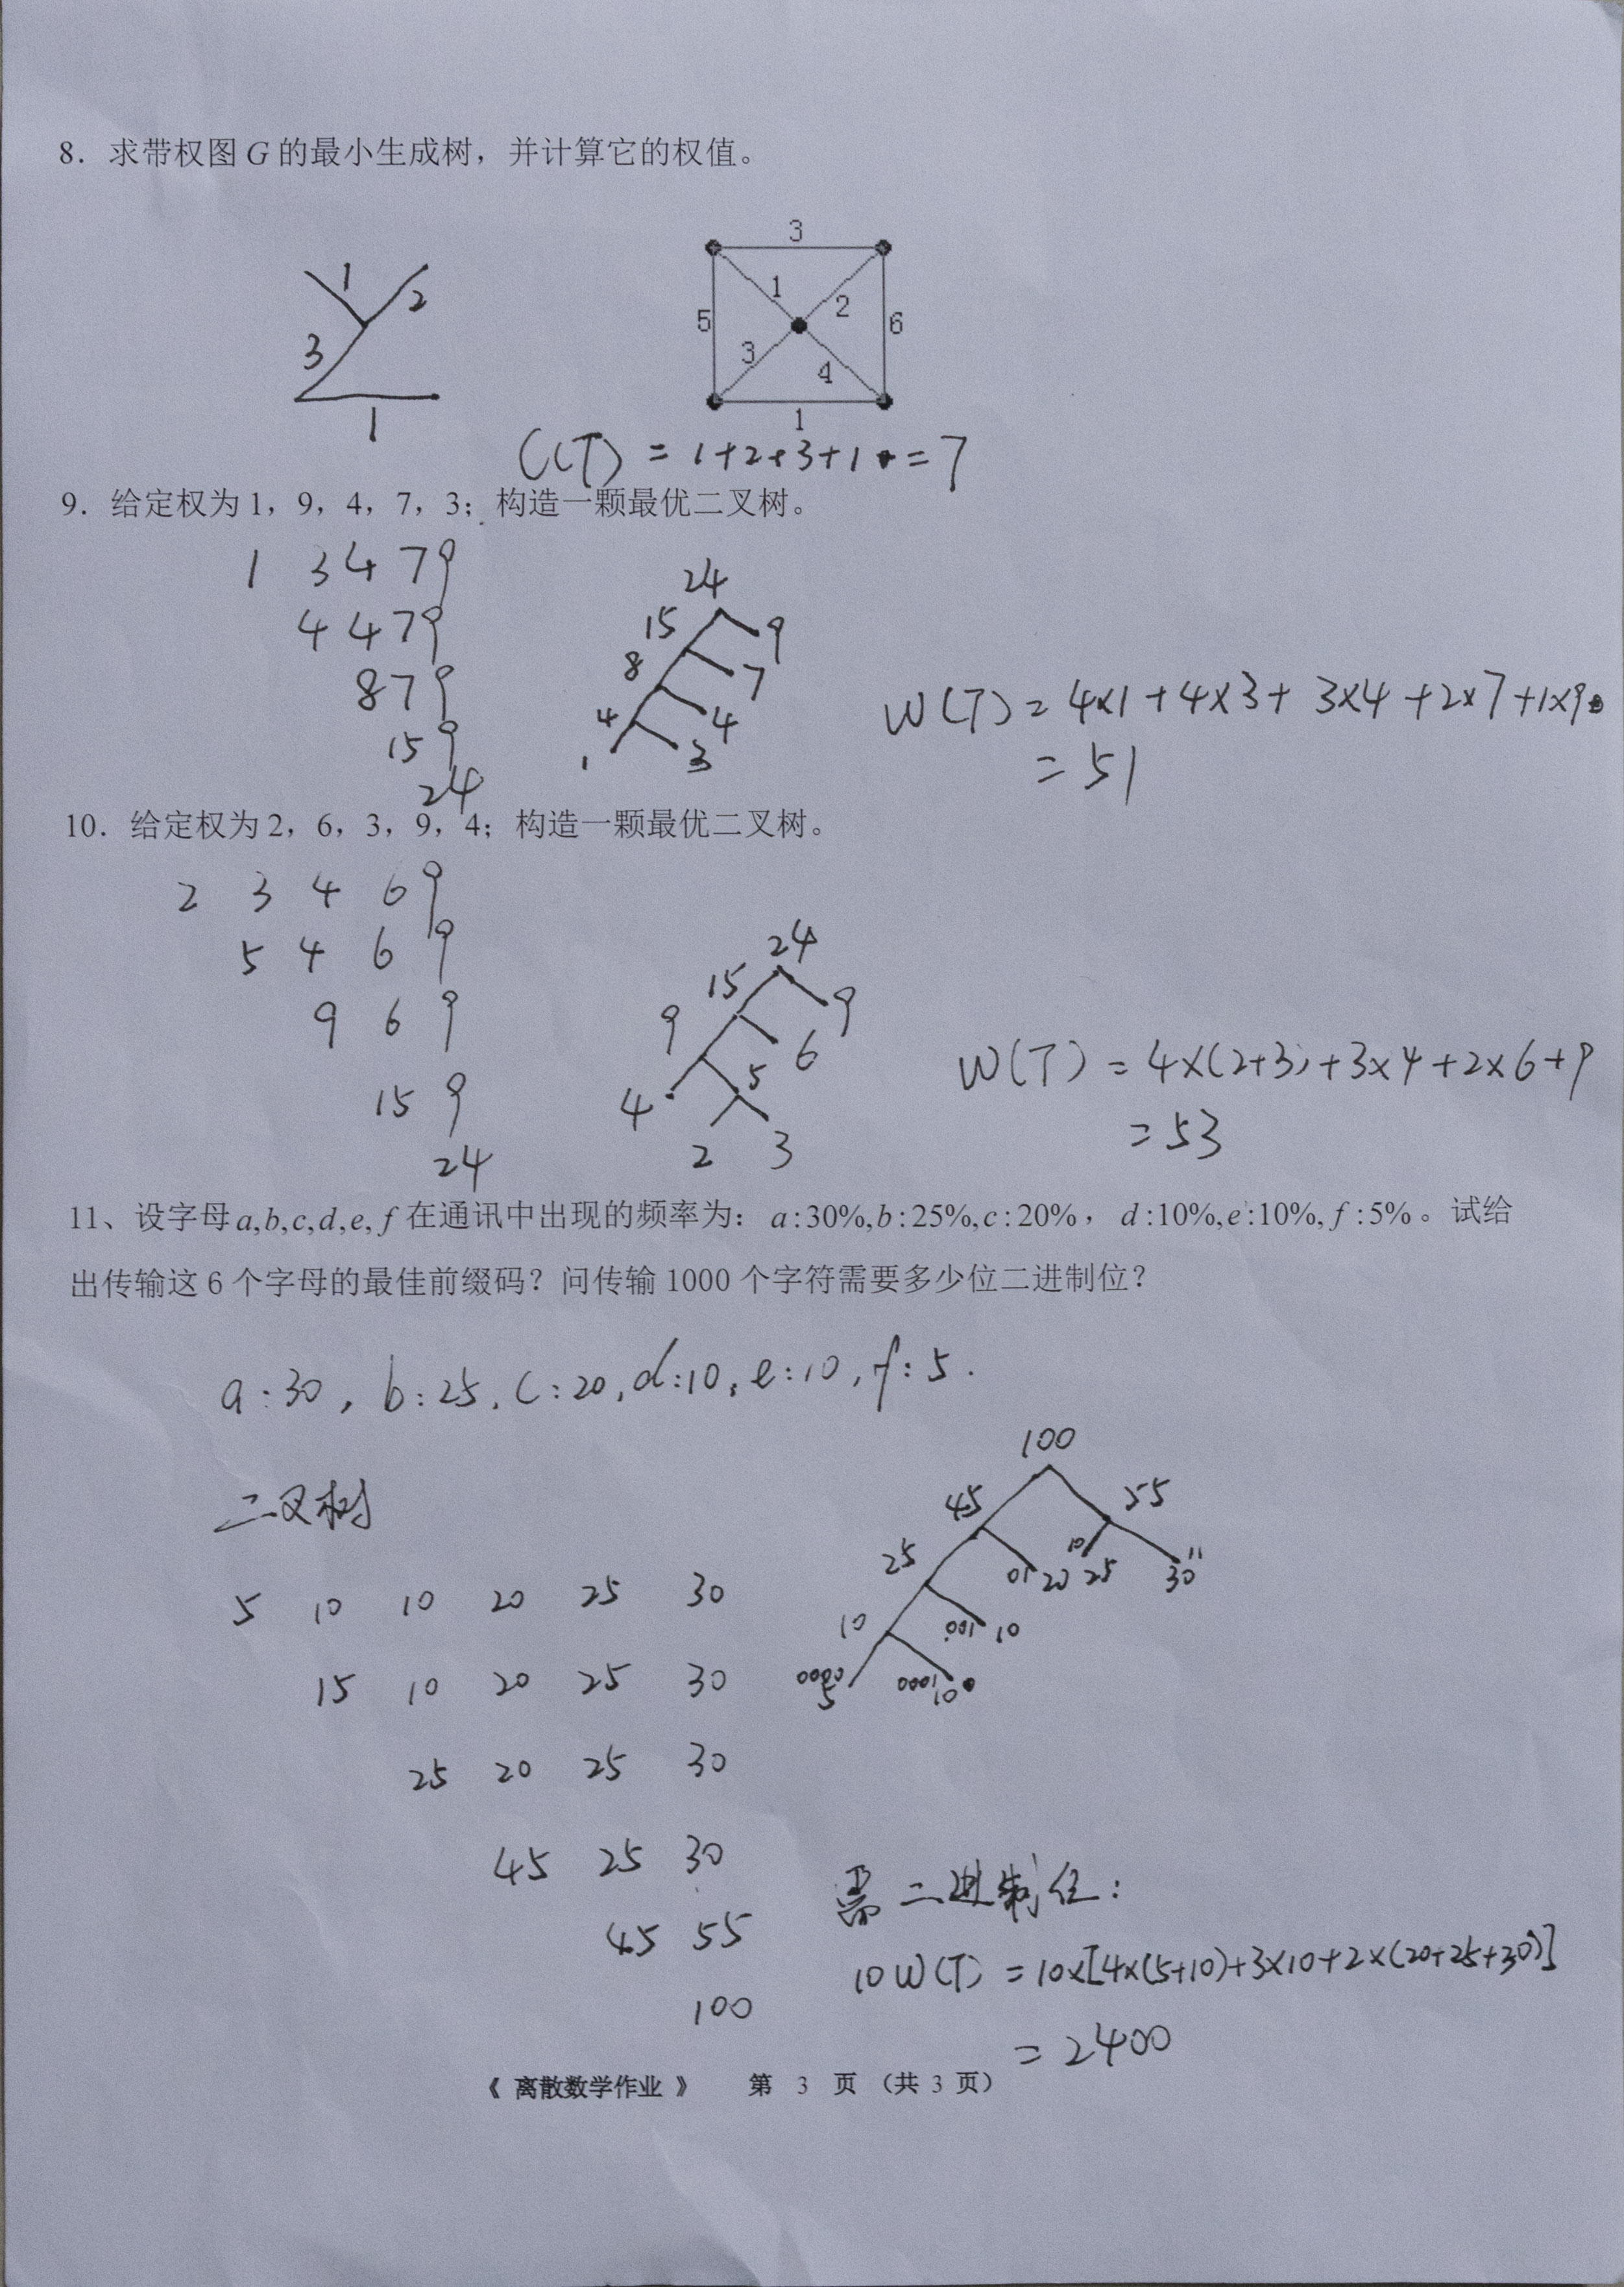 8. 求带权图 G 的最小生成树，并计算它的权值。
3
1
2
5
6
3
4
1
1
2
3
1
C(T) = 1+2+3+1 = 7
9. 给定权为 1，9，4，7，3；构造一颗最优二叉树。
1 3 4 7 9
4 4 7 9
8 7 9
15 9
24
24
15 9
8 7
4 4
1 3
W(T) = 4×1 + 4×3 + 3×4 + 2×7 + 1×9
= 51
10. 给定权为 2，6，3，9，4；构造一颗最优二叉树。
2 3 4 6 9
5 4 6 9
9 6 9
15 9
24
24
15 9
9 6
4 5
2 3
W(T) = 4×(2+3)+3×4+2×6+9
= 53
11、设字母 a,b,c,d,e, f 在通讯中出现的频率为：a:30%,b:25%,c:20%，d:10%,e:10%, f:5%。试给
出传输这 6 个字母的最佳前缀码？问传输 1000 个字符需要多少位二进制位？
a:30, b:25, c:20, d:10, e:10, f:5.
二叉树
5 10 10 20 25 30
15 10 20 25 30
25 20 25 30
45 25 30
45 55
100
100
45 55
25 01 20 10 25 11 30
10 001 10
0000 5 0001 10
需二进制位：
10W(T) = 10×[4×(5+10)+3×10+2×(20+25+30)]
= 2400
《 离散数学作业 》 第 3 页 （共 3 页）